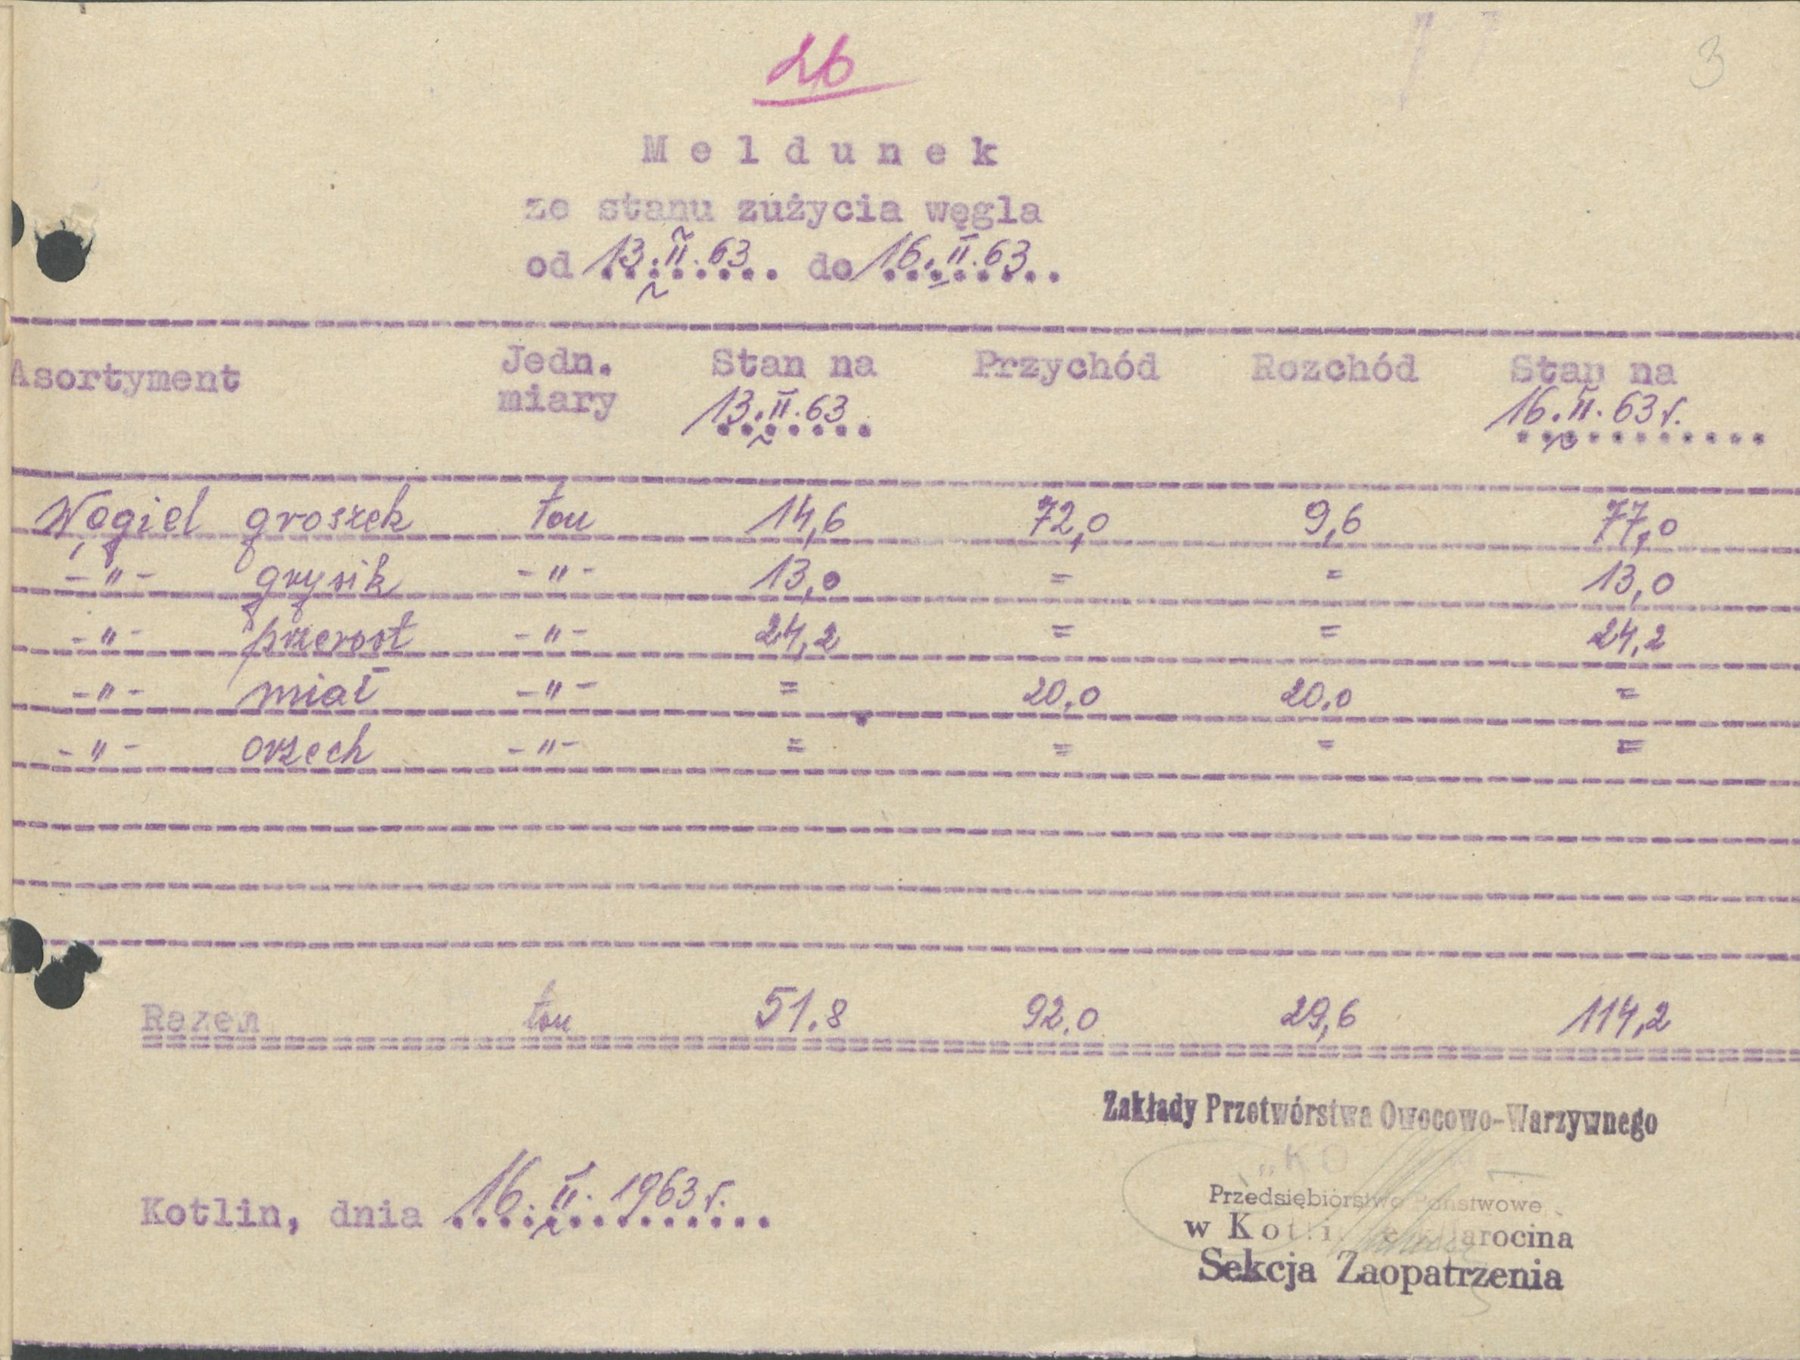 26
3
Meldunek
ze stanu zużycia węgla
od 13.II.63 do 16.II.63
Asortyment Jedn. miary Stan na 13.II.63 Przychód Rozchód Stan na 16.II.63 r.
Węgiel groszek ton 14,6 72,0 9,6 77,0
-"- grysik -"- 13,0 = = 13,0
-"- przerost -"- 24,2 = = 24,2
-"- miał -"- = 20,0 20,0 =
-"- orzech -"- = = = =
Razem ton 51.8 92.0 29,6 114,2
Zakłady Przetwórstwa Owocowo-Warzywnego
Przedsiębiorstwo Państwowe
w Kotlinie Jarocina
Sekcja Zaopatrzenia
Kotlin, dnia 16.II.1963 r.